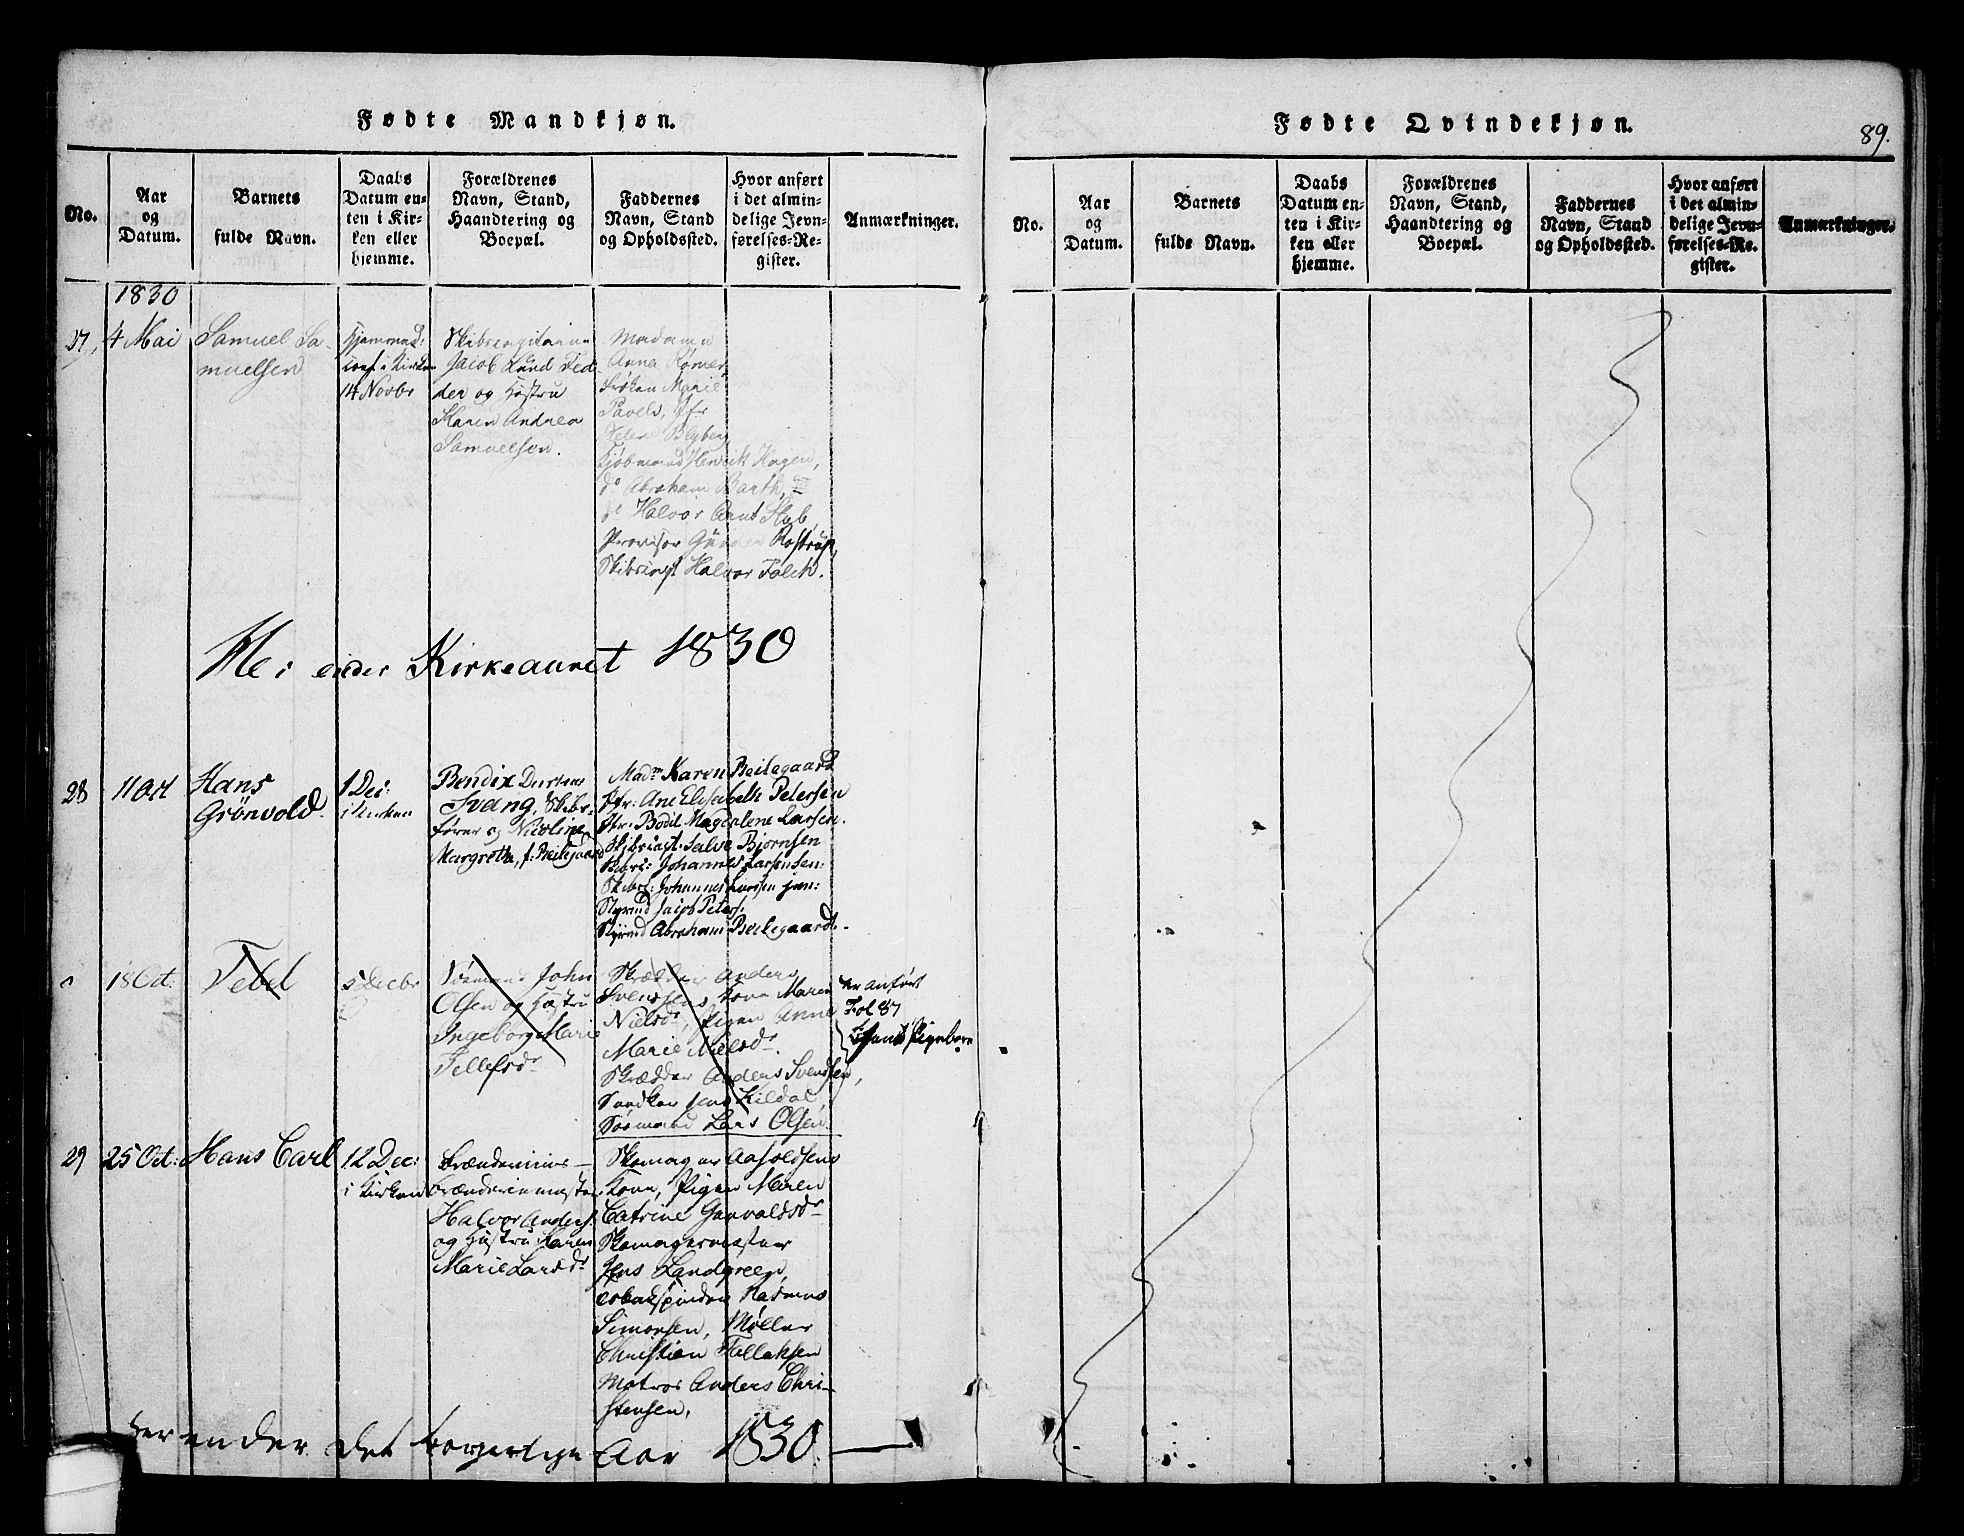 Fødte Mandkjøn.
No.
Aar
og
Datum.
Barnets
fulde Navn.
Daabs
Datum en-
ten i Kir-
ken eller
hjemme.
Forældrenes
Navn, Stand,
Haandtering og
Boepæl.
Faddernes
Navn, Stand
og Opholdssted.
Hvor anført
i det almin-
delige Jevn-
førelses-Re-
gister.
Anmærkninger.
1830
27,
4 Mai
Samuel Sa-
muelsen
Hjemmed:
i Kirken
14 Novbr
Jacob Lund Fed
der og Hustru
Karen Andrea
Samuelsen.
Madame
Anna Rømer
Frøken Marie
Pavels, Jfr
Helene Blyberg
Kjøbmand Henrik Hagen,
do Abraham Barth,
do Halvor Arnt
Provisor Rostrup,
Skibscapt Halvor Falch.
Her ender Kirkeaaret 1830
28
11 Oct
Hans
Grønvold
1 Dec:
i Kirken
Bendix
Svang, Skibs-
fører og Nicoline
Margrethe, f. Beilegaard
Madm Karen Beilegaard
Jfr: Ane Elisabeth Petersen
Jfr: Bodil Magdalene Larsen.
Skibscapt. Salve Bjørnsen
Skibsc: Johannes Larsen sen:
Skibsc: Johannes Larsen jun:
Styrmd Jacob Peters.
Styrmd Abraham Beilegaardt.
18 Oct:
Tebel
5 Decbr
Sømand John
Olsen og Hustru
Ingeborg Marie
Tellefsdr
Skrædder Anders
Svensens Kone Maren
Nielsdr, Pigen Anne
Marie Nielsdr.
Skrædder Anders Svendsen,
Snedker Jens Kildal
Sømand Lars Olsen.
er anført
Fol 87
blandt Pigebørn
29
25 Oct:
Hans Carl
12 Dec:
i Kirken
Brænderimester
Halvor Anders.
og Hustru Karen
Marie Larsdr
Skomager Aasoldsens
Kone, Pigen Maren
Catrine Gunvaldsdr
Skomagermester
Jens Landgreen,
Rasmus
Simonsen, Møller
Christian Tallaksen
Matros Anders Chri-
stensen,
Her ender det borgerlige Aar 1830.
Fødte Qvindekjøn.
89.
No.
Aar
og
Datum.
Barnets
fulde Navn.
Daabs
Datum en-
ten i Kir-
ken eller
hjemme.
Forældrenes
Navn, Stand,
Haandtering og
Boepæl.
Faddernes
Navn, Stand
og Opholdssted.
Hvor anført
i det almin-
delige Jevn-
førelses-Re-
gister.
Anmærkninger.